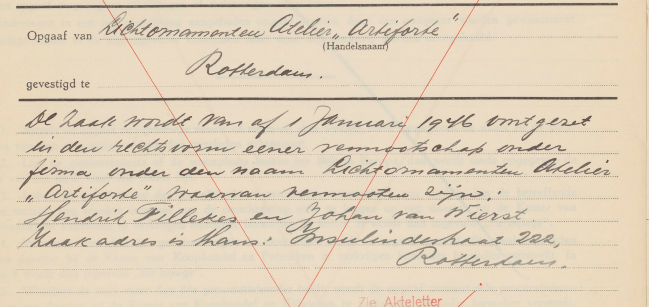 Opgaaf van Lichtornamenten Atelier „Artiforte"
(Handelsnaam)
gevestigd te Rotterdam.
De zaak wordt van af 1 Januari 1946 voortgezet
in den rechtsvorm eener vennootschap onder
firma onder den naam Lichtornamenten Atelier
„Artiforte" waarvan vennooten zijn:
Hendrik Fillekes en Johan van Wierst.
Zaak adres is thans: Insulindestraat 222,
Rotterdam.
Zie Akteletter